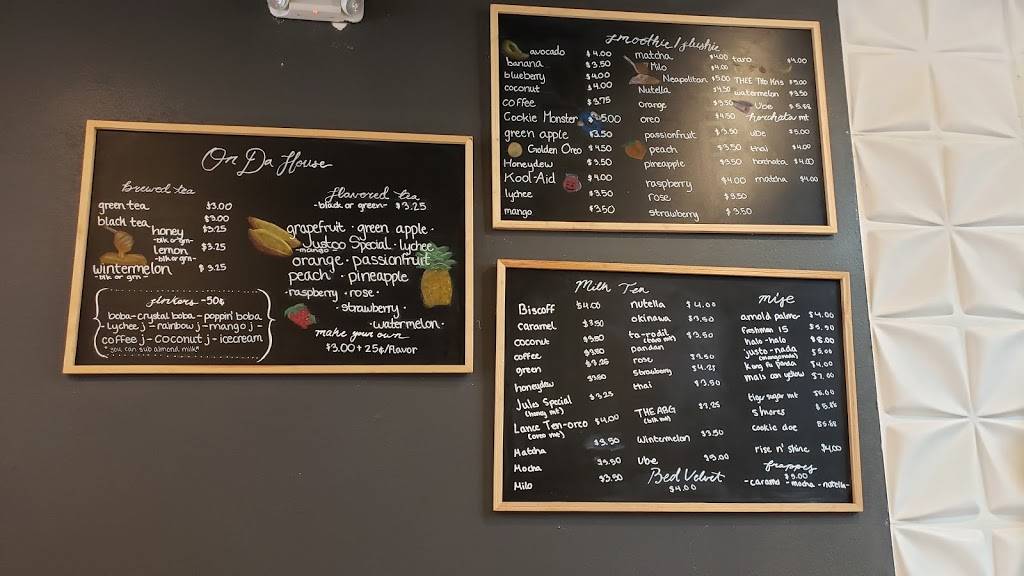 On Da House
Brewed tea
green tea $3.00
black tea $3.00
honey $3.25
-blk or grn-
lemon $3.25
-blk or grn-
wintermelon $3.25
-blk or grn-
flavored tea
-black or green- $3.25
grapefruit · green apple ·
Justoo Special · lychee
-mango-
orange · passionfruit
peach · pineapple
·raspberry · rose ·
·strawberry ·
·watermelon·
make your own
$3.00 + 25¢/flavor
-50¢
boba - crystal boba - poppin' boba
lychee j - rainbow j - mango j -
coffee j - coconut j - icecream
"you can sub almond milk"
smoothie/slushie
avocado $4.00
banana $3.50
blueberry $4.00
coconut $4.00
coffee $3.75
Cookie Monster $5.00
green apple $3.50
Golden Oreo $4.50
Honeydew $3.50
Kool-Aid $4.00
lychee $3.50
mango $3.50
matcha $4.00
Milo $4.00
Neapolitan $5.00
Nutella $4.50
orange $3.50
oreo $4.50
passionfruit $3.50
peach $3.50
pineapple $3.50
raspberry $4.00
rose $3.50
strawberry $3.50
taro $4.00
THEE Tito Kris $5.00
watermelon $3.50
Ube
horchata mt
ube $5.00
thai $4.00
horchata $4.00
matcha $4.00
Milk Tea
Biscoff $4.00
caramel $3.50
coconut $3.50
coffee $3.50
green $3.25
honeydew $3.50
Jules Special $3.25
(honey mt)
Lanz Ten-oreo $4.00
(oreo mt)
Matcha $3.50
Mocha $3.50
Milo $3.50
nutella $4.00
okinawa $3.50
ta-rodil $3.50
(taro mt)
pandan
rose $3.50
strawberry $4.25
thai $3.50
THE ABG $3.25
(blk mt)
Wintermelon $3.50
Ube $5.00
Red Velvet
$4.00
misc
arnold palmer $4.00
freshman 15
halo-halo $8.00
justo-nada $5.00
Kung Fu panda $4.00
mais con yellow $7.00
tiger sugar mt $6.00
s'mores
cookie doe
rise n' shine $4.00
frappes
$5.00
-caramel -mocha -nutella-